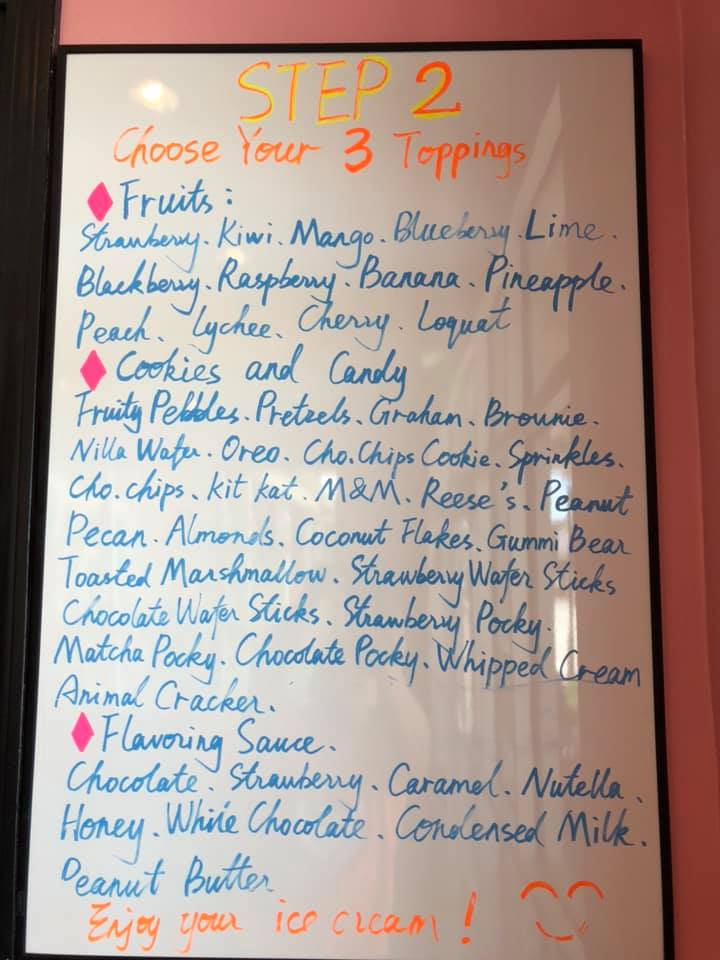 STEP 2
Choose Your 3 Toppings
Fruits:
Strawberry. Kiwi. Mango. Blueberry. Lime.
Blackberry. Raspberry. Banana. Pineapple.
Peach. Lychee. Cherry. Loquat
Cookies and Candy
Fruity Pebbles. Pretzels. Graham. Brownie.
Nilla Wafer. Oreo. Cho. Chips Cookie. Sprinkles.
Cho. chips. kit kat. M&M. Reese's. Peanut
Pecan. Almonds. Coconut Flakes. Gummi Bear
Toasted Marshmallow. Strawberry Wafer Sticks
Chocolate Wafer Sticks. Strawberry Pocky.
Matcha Pocky. Chocolate Pocky. Whipped Cream
Animal Cracker.
Flavoring Sauce.
Chocolate. Strawberry. Caramel. Nutella.
Honey. White Chocolate. Condensed Milk.
Peanut Butter
Enjoy your ice cream!